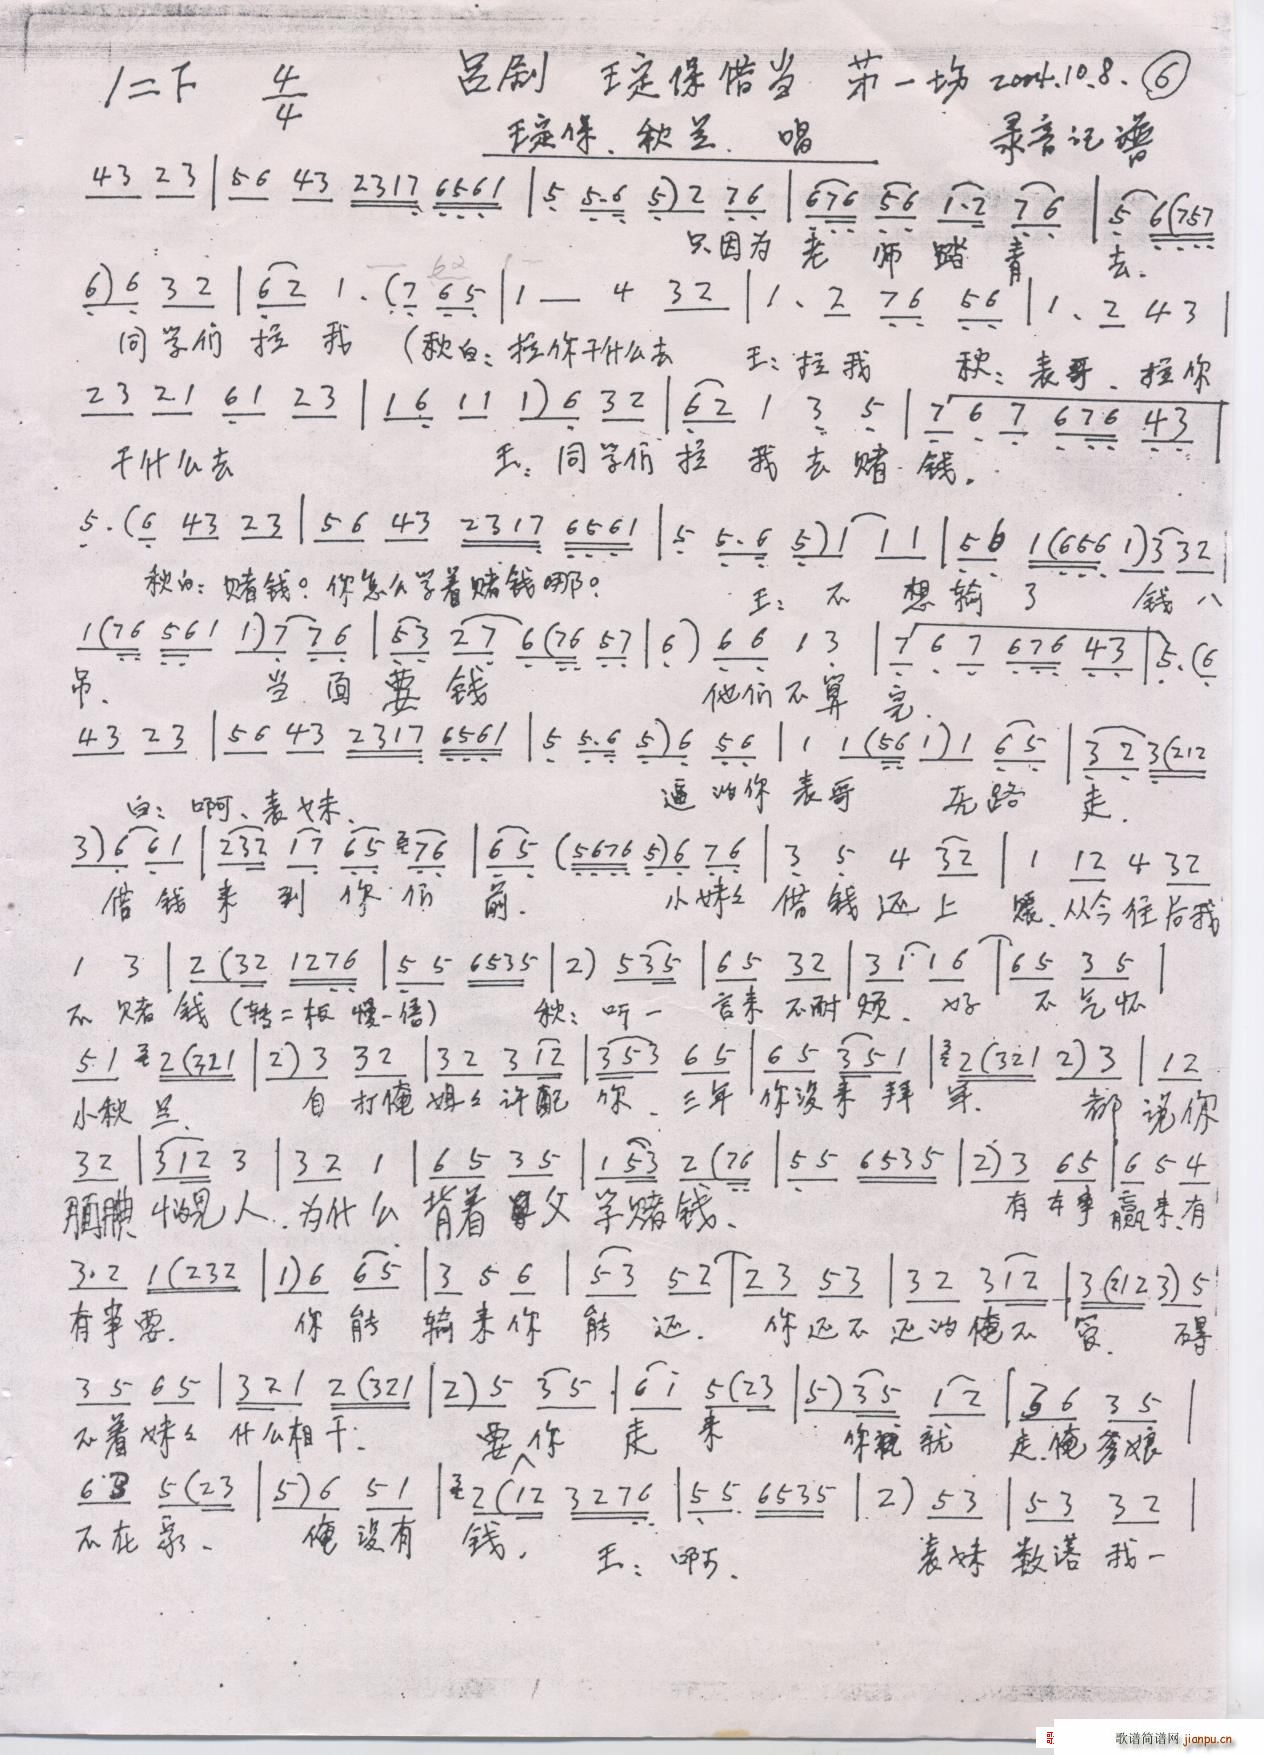 1=F 4/4 吕剧 王定保借当 第一场 2004.10.8. ⑥
王定保、秋兰. 唱 录音记谱
43 23 | 56 43 2317 6561 | 5 5.6 5) 2 76 | 676 56 1.2 76 | 5 6(757
只因为 老师踏青 去.
6) 6 32 | 62 1. (7 65 | 1 — 4 32 | 1. 2 76 56 | 1. 2 43 |
同学们拉我 (秋白: 拉你干什么去 王: 拉我 秋: 表哥、拉你
23 21 61 23 | 16 11 1) 6 32 | 62 1 3 5 | 7 6 7 676 43 |
干什么去 王: 同学们拉我去赌钱.
5. (6 43 23 | 56 43 2317 6561 | 5 5.6 5) 1 11 | 56 1(656 1) 3 32 |
秋白: 赌钱? 你怎么学着赌钱哪? 王: 不想输了 钱八
1(76 561 1) 7 76 | 53 27 6(76 57 | 6) 66 1 3 | 7 6 7 676 43 | 5. (6
吊. 当面要钱 他们不算完.
43 23 | 56 43 2317 6561 | 5 5.6 5) 6 56 | 1 1(56 1) 1 65 | 32 3(212
白: 啊、表妹. 逼的你表哥 无路走.
3) 6 61 | 232 17 65 76 | 65 (5676 5) 6 76 | 3 5 4 32 | 1 12 4 32
借钱来到你们前. 小妹妹借钱还上赎. 从今往后我
1 3 | 2(32 1276 | 55 6535 | 2) 535 | 65 32 | 31 16 | 65 35 |
不赌钱(转二板慢一倍) 秋: 听一言来不耐烦. 好不气坏
51 2(321 | 2) 3 32 | 32 312 | 353 65 | 65 351 | 2(321 2) 3 | 12
小秋兰. 自打俺姐姐许配你. 三年你没来拜年. 都说你
32 | 312 3 | 32 1 | 65 35 | 153 2(76 | 55 6535 | 2) 3 65 | 654
腼腆怕见人. 为什么背着舅父学赌钱. 有本事赢来. 有
3.2 1(232 | 1) 6 65 | 3 56 | 53 52 | 23 53 | 32 312 | 3(212 3) 5
有事要. 你能输来你能还. 你还不还的俺不管. 碍
35 65 | 321 2(321 | 2) 5 35 | 61 5(23 | 5) 35 12 | 36 35 |
不着妹妹什么相干. 要你走来 你就走. 俺爹娘
63 5(23 | 5) 6 51 | 2(12 3276 | 55 6535 | 2) 53 | 53 32 |
不在家. 俺没有钱. 王: 啊. 表妹数落我一
歌谱简谱网 jianpu.cn